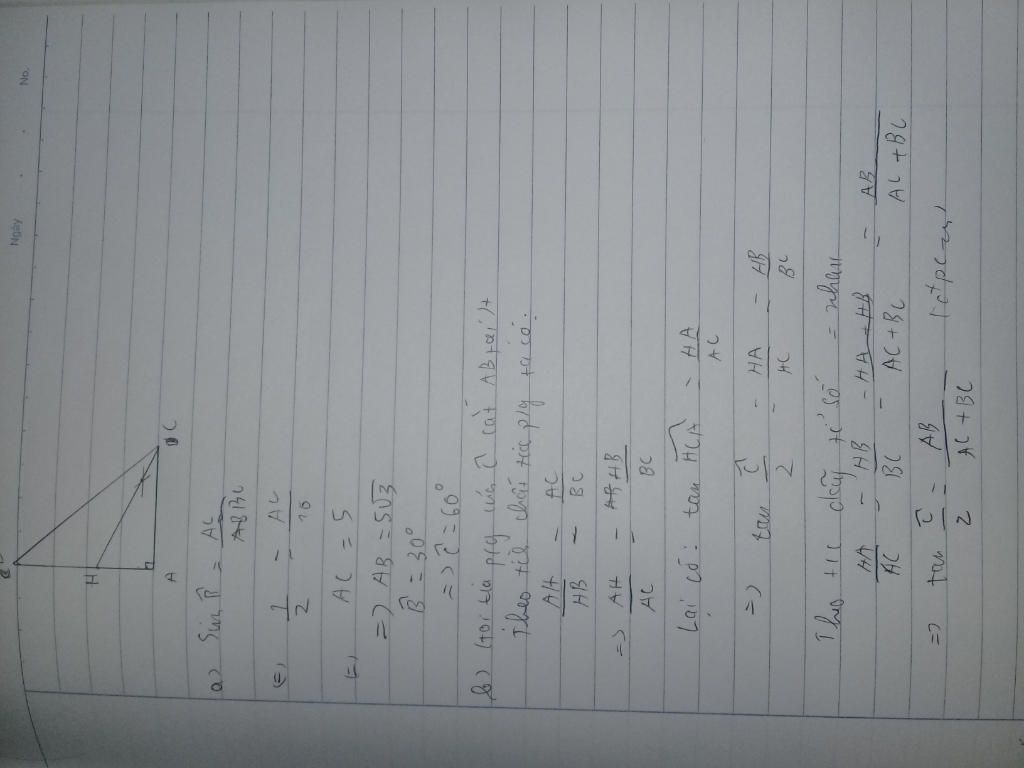 Ngày
No.
B
H
A
C
a) Sin B̂ = AC/BC
(=) 1/2 = AC/10
(=) AC = 5
=> AB = 5√3
B̂ = 30°
=> Ĉ = 60°
b) Gọi tia pzg Ĉ cắt AB tại H
Theo t/c chất tia pzg ta có:
AH/HB = AC/BC
=> AH/AC = HB/BC
Lại có: tan HCA = HA/AC
=> tan Ĉ/2 = HA/AC = AB/BC
Theo t/c dãy tỉ số = nhau
HA/AC = HB/BC = HA+HB/AC+BC = AB/AC+BC
=> tan Ĉ/2 = AB/AC+BC (đpcm)